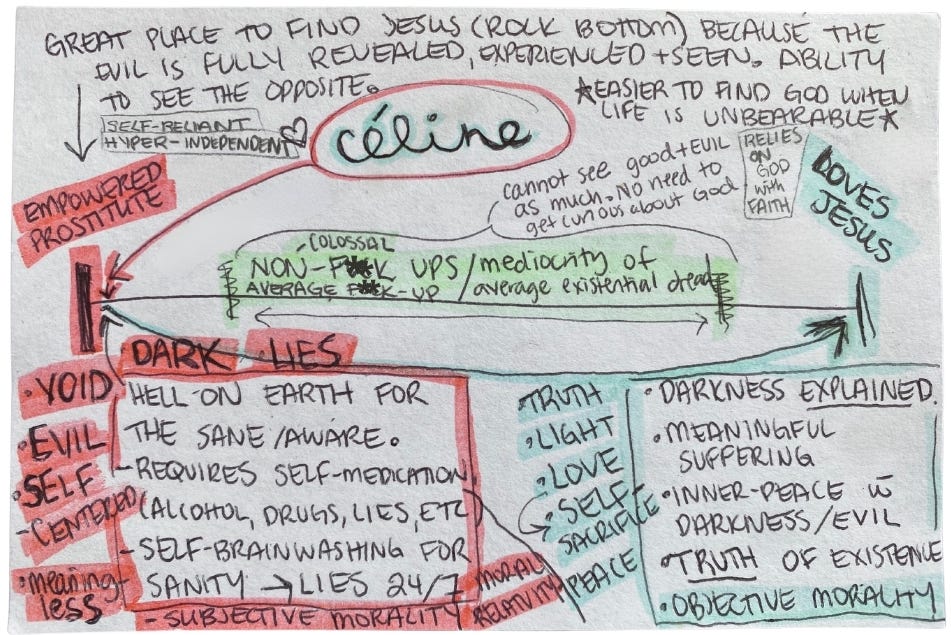 GREAT PLACE TO FIND JESUS (ROCK BOTTOM) BECAUSE THE
EVIL IS FULLY REVEALED, EXPERIENCED + SEEN. ABILITY
TO SEE THE OPPOSITE.
*EASIER TO FIND GOD WHEN
LIFE IS UNBEARABLE*
SELF-RELIANT
HYPER-INDEPENDENT
céline
cannot see good + EVIL
as much. No need to
get curious about God
RELIES
ON
GOD
with
FAITH
LOVES
JESUS
EMPOWERED
PROSTITUTE
-COLOSSAL
NON-F**K UPS / mediocrity of
AVERAGE F**K-UP / average existential dread
DARK LIES
• VOID
• EVIL
• SELF
-CENTERED
• meaning-
less
HELL ON EARTH FOR
THE SANE/AWARE.
- REQUIRES SELF-MEDICATION
(ALCOHOL, DRUGS, LIES, ETC)
- SELF-BRAINWASHING FOR
SANITY → LIES 24/7
- SUBJECTIVE MORALITY
MORAL
RELATIVITY
• TRUTH
• LIGHT
• LOVE
• SELF-
SACRIFICE
• PEACE
• DARKNESS EXPLAINED.
• MEANINGFUL
SUFFERING
• INNER-PEACE w
DARKNESS/EVIL
• TRUTH OF EXISTENCE
• OBJECTIVE MORALITY